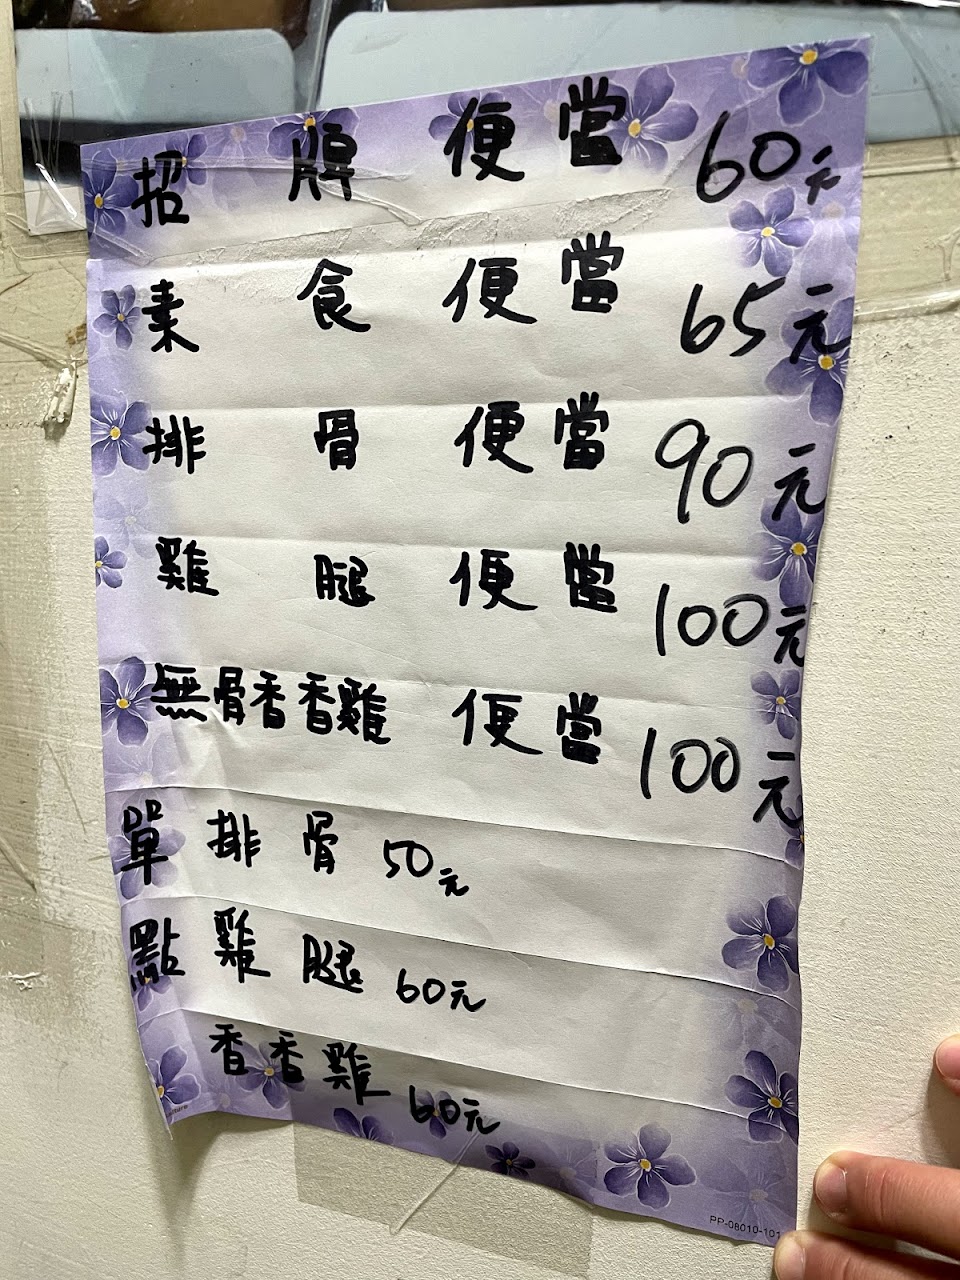 招牌便當 60元
素食便當 65元
排骨便當 90元
雞腿便當 100元
無骨香香雞便當 100元
單點
排骨 50元
雞腿 60元
香香雞 60元
PP-08010-101